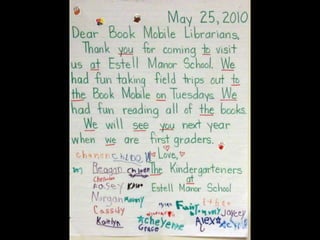 May 25, 2010
Dear Book Mobile Librarians,
Thank you for coming to visit
us at Estell Manor School. We
had fun taking field trips out to
the Book Mobile on Tuesdays. We
had fun reading all of the books.
We will see you next year
when we are first graders.
Love,
Reagan The Kindergarteners
Kasey at
Morgan Estell Manor School
Cassidy
Kaitlyn Cheyenne Alexa
Grace